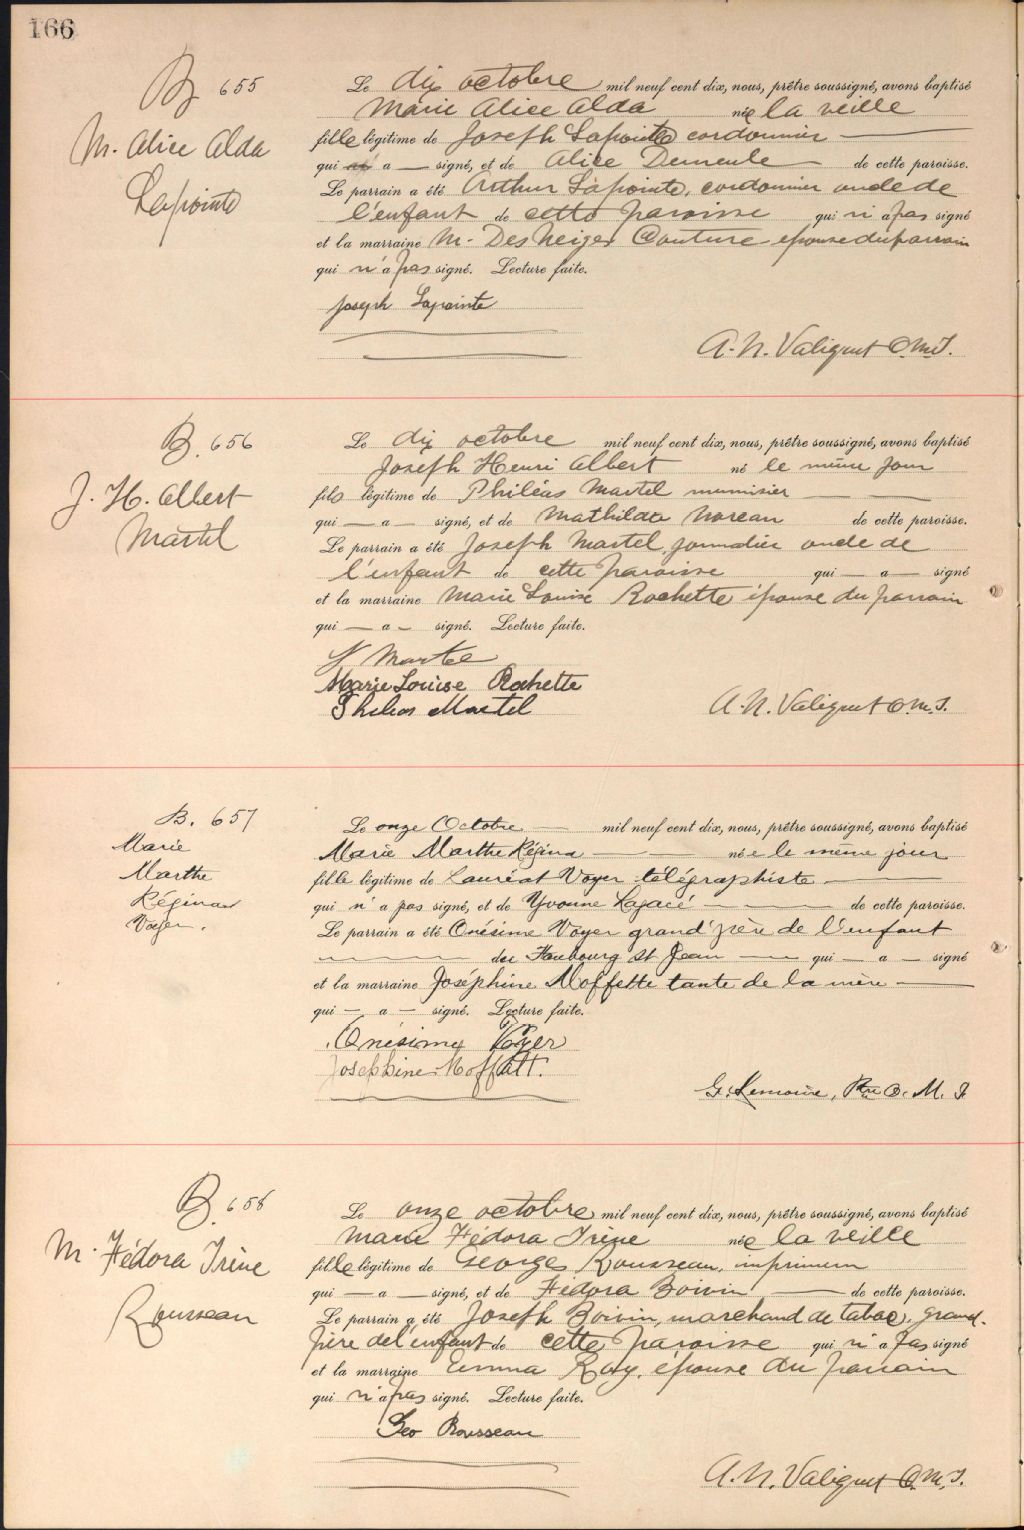 166
B 655
M. Alice Alda
Lapointe
Le dix octobre mil neuf cent dix, nous, prêtre soussigné, avons baptisé
Marie Alice Alda née la veille
fille légitime de Joseph Lapointe cordonnier
qui a — signé, et de Alice Demeule — de cette paroisse.
Le parrain a été Arthur Lapointe, cordonnier oncle de
l'enfant de cette paroisse qui n'a pas signé
et la marraine M. DesNeiges Couture épouse du parrain
qui n'a pas signé. Lecture faite.
Joseph Lapointe
A. N. Valiquet O.M.I.
B. 656
J. H. Albert
Martel
Le dix octobre mil neuf cent dix, nous, prêtre soussigné, avons baptisé
Joseph Henri Albert né le même jour
fils légitime de Philéas Martel menuisier
qui — a — signé, et de Mathilda Moreau de cette paroisse.
Le parrain a été Joseph Martel, journalier oncle de
l'enfant de cette paroisse qui — a — signé
et la marraine Marie Louise Rochette épouse du parrain
qui — a — signé. Lecture faite.
J Martel
Marie Louise Rochette
Phileas Martel
A. N. Valiquet O.M.I.
B. 657
Marie
Marthe
Régina
Voyer.
Le onze Octobre — mil neuf cent dix, nous, prêtre soussigné, avons baptisé
Marie Marthe Régina — née le même jour
fille légitime de Lauréat Voyer télégraphiste —
qui n'a pas signé, et de Yvonne Lagacé — de cette paroisse.
Le parrain a été Onésime Voyer grand'père de l'enfant
du Faubourg St Jean — qui — a — signé
et la marraine Joséphine Moffette tante de la mère —
qui — a — signé. Lecture faite.
Onésime Voyer
Josephine Moffatt.
G. Lemoine, Ptre O. M. I.
B. 658
M. Fédora Irène
Rousseau
Le onze octobre mil neuf cent dix, nous, prêtre soussigné, avons baptisé
Marie Fédora Irène née la veille
fille légitime de Georges Rousseau, imprimeur
qui — a — signé, et de Fédora Boivin — de cette paroisse.
Le parrain a été Joseph Boivin, marchand de tabac, grand-
père de l'enfant de cette paroisse qui n'a pas signé
et la marraine Emma Roy, épouse du parrain
qui n'a pas signé. Lecture faite.
Geo Rousseau
A. N. Valiquet O.M.I.